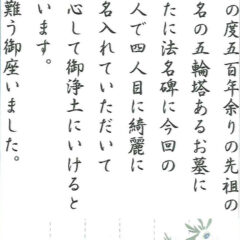 の度五百年余りの先祖の
名の五輪塔あるお墓に
たに法名碑に今回の
人で四人目に綺麗に
名入れていただいて
心して御浄土にいけると
います。
難う御座いました。